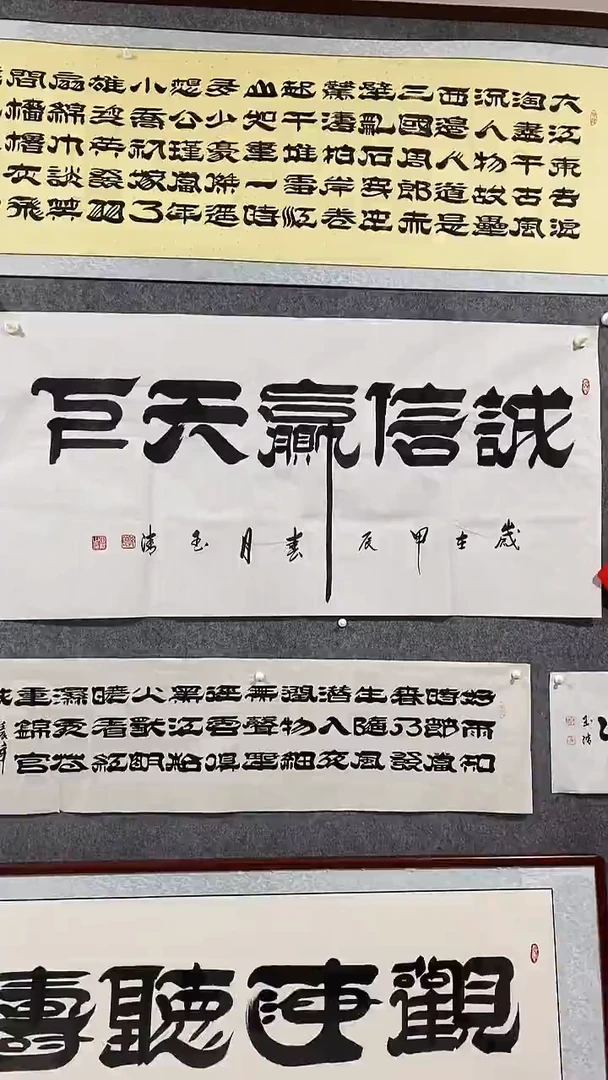 大江東去浪
淘盡千古風
流人物故壘
西邊人道是
三國周郎赤
壁亂石穿空
驚濤拍岸卷
起千堆雪江
山如畫一時
多少豪傑遥
想公瑾當年
小喬初嫁了
雄姿英發羽
扇綸巾談笑
間檣櫓灰飛
誠信赢天下
歲在甲辰春月玉涛
好雨知
時節當
春乃發
生隨風
潜入夜
潤物細
無聲野
徑雲俱
黑江船
火獨明
曉看紅
濕處花
重錦官
城
玉涛
觀海聽濤